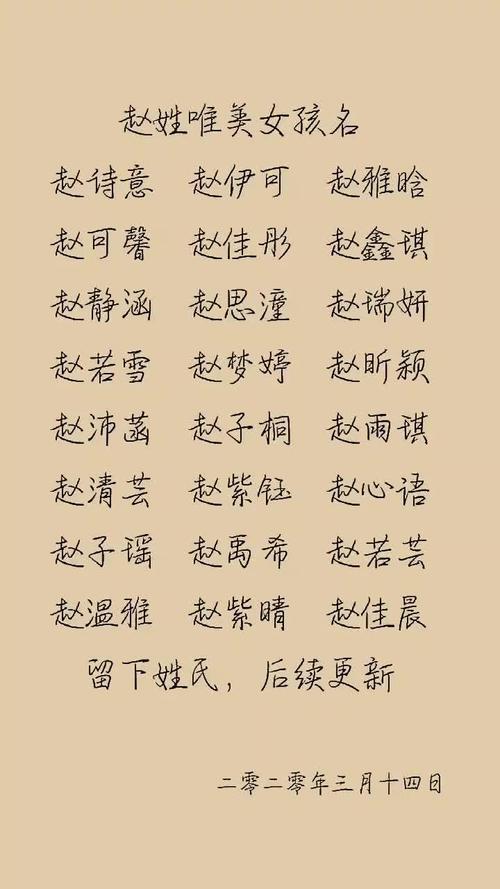 赵姓唯美女孩名
赵诗意 赵伊可 赵雅晗
赵可馨 赵佳彤 赵鑫琪
赵静涵 赵思潼 赵瑞妍
赵若雪 赵梦婷 赵昕颖
赵沛菡 赵子桐 赵雨琪
赵清芸 赵紫钰 赵心语
赵子瑶 赵禹希 赵若芸
赵温雅 赵紫晴 赵佳晨
留下姓氏，后续更新
二零二零年三月十四日